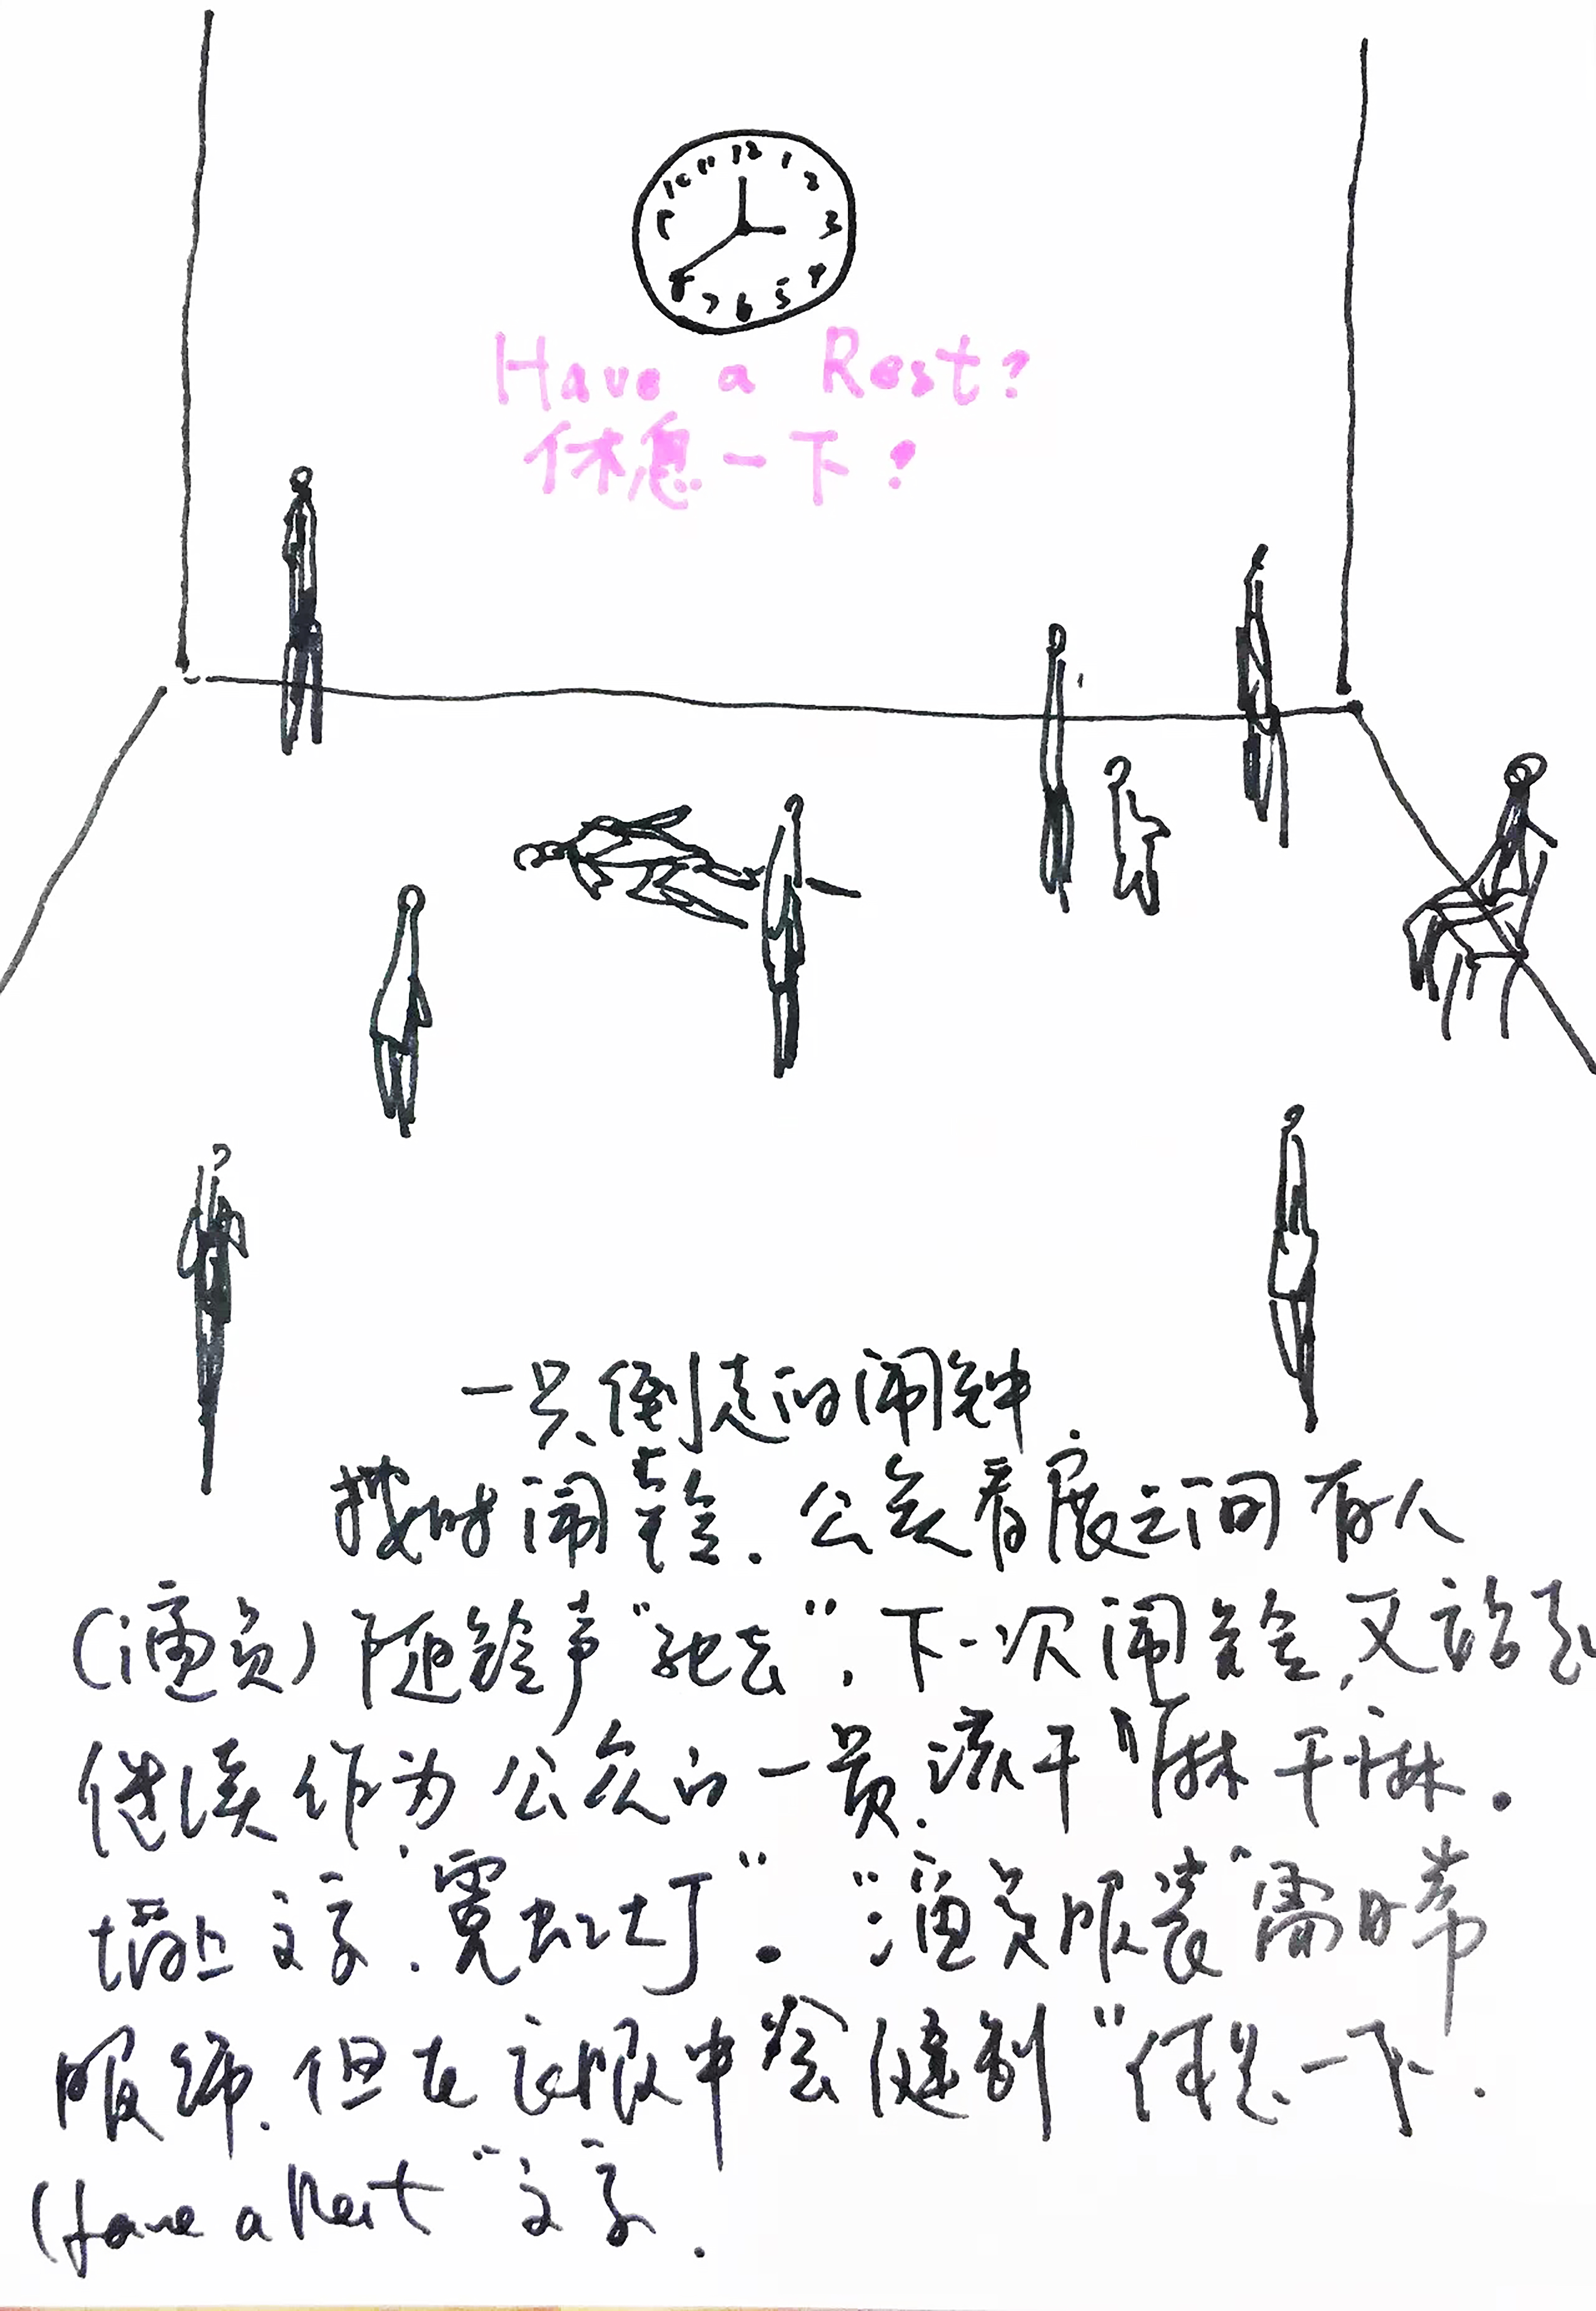 12 1 2 3 4 5 6 7 8 9 10 11
Have a Rest?
休息一下?
一只倒走的闹钟
按时闹铃. 公众看展之间有人
(演员)随铃声"死去", 下一次闹铃, 又
继续作为公众的一员.
墙上文字"霓虹灯". "演员服装"需日常
服饰. 但在衣服中会缝制"休息一下.
Have a Rest"文字.